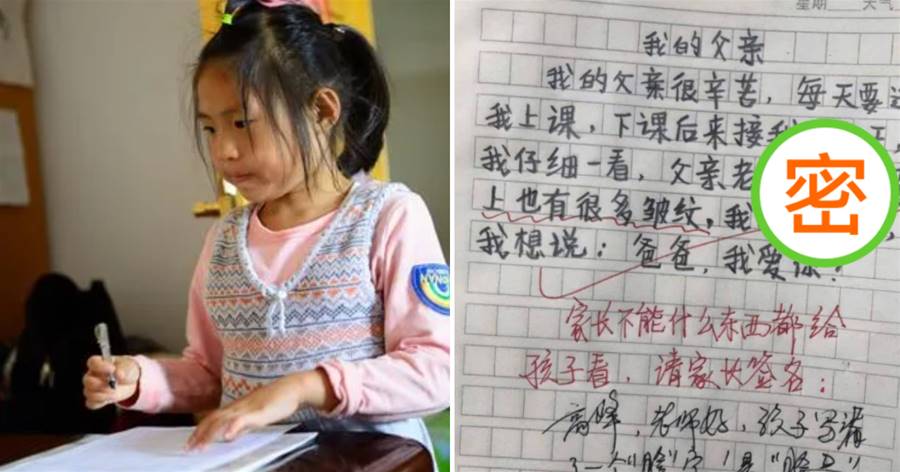 星期 天气
我的父亲
我的父亲很辛苦，每天要送
我上课，下课后来接我
我仔细一看，父亲老
密
上也有很多皱纹，我
我想说：爸爸，我爱你！
家长不能什么东西都给
孩子看，请家长签名：
高峰，老师好，孩子写漏
了一个"脸"字！是"脸上"